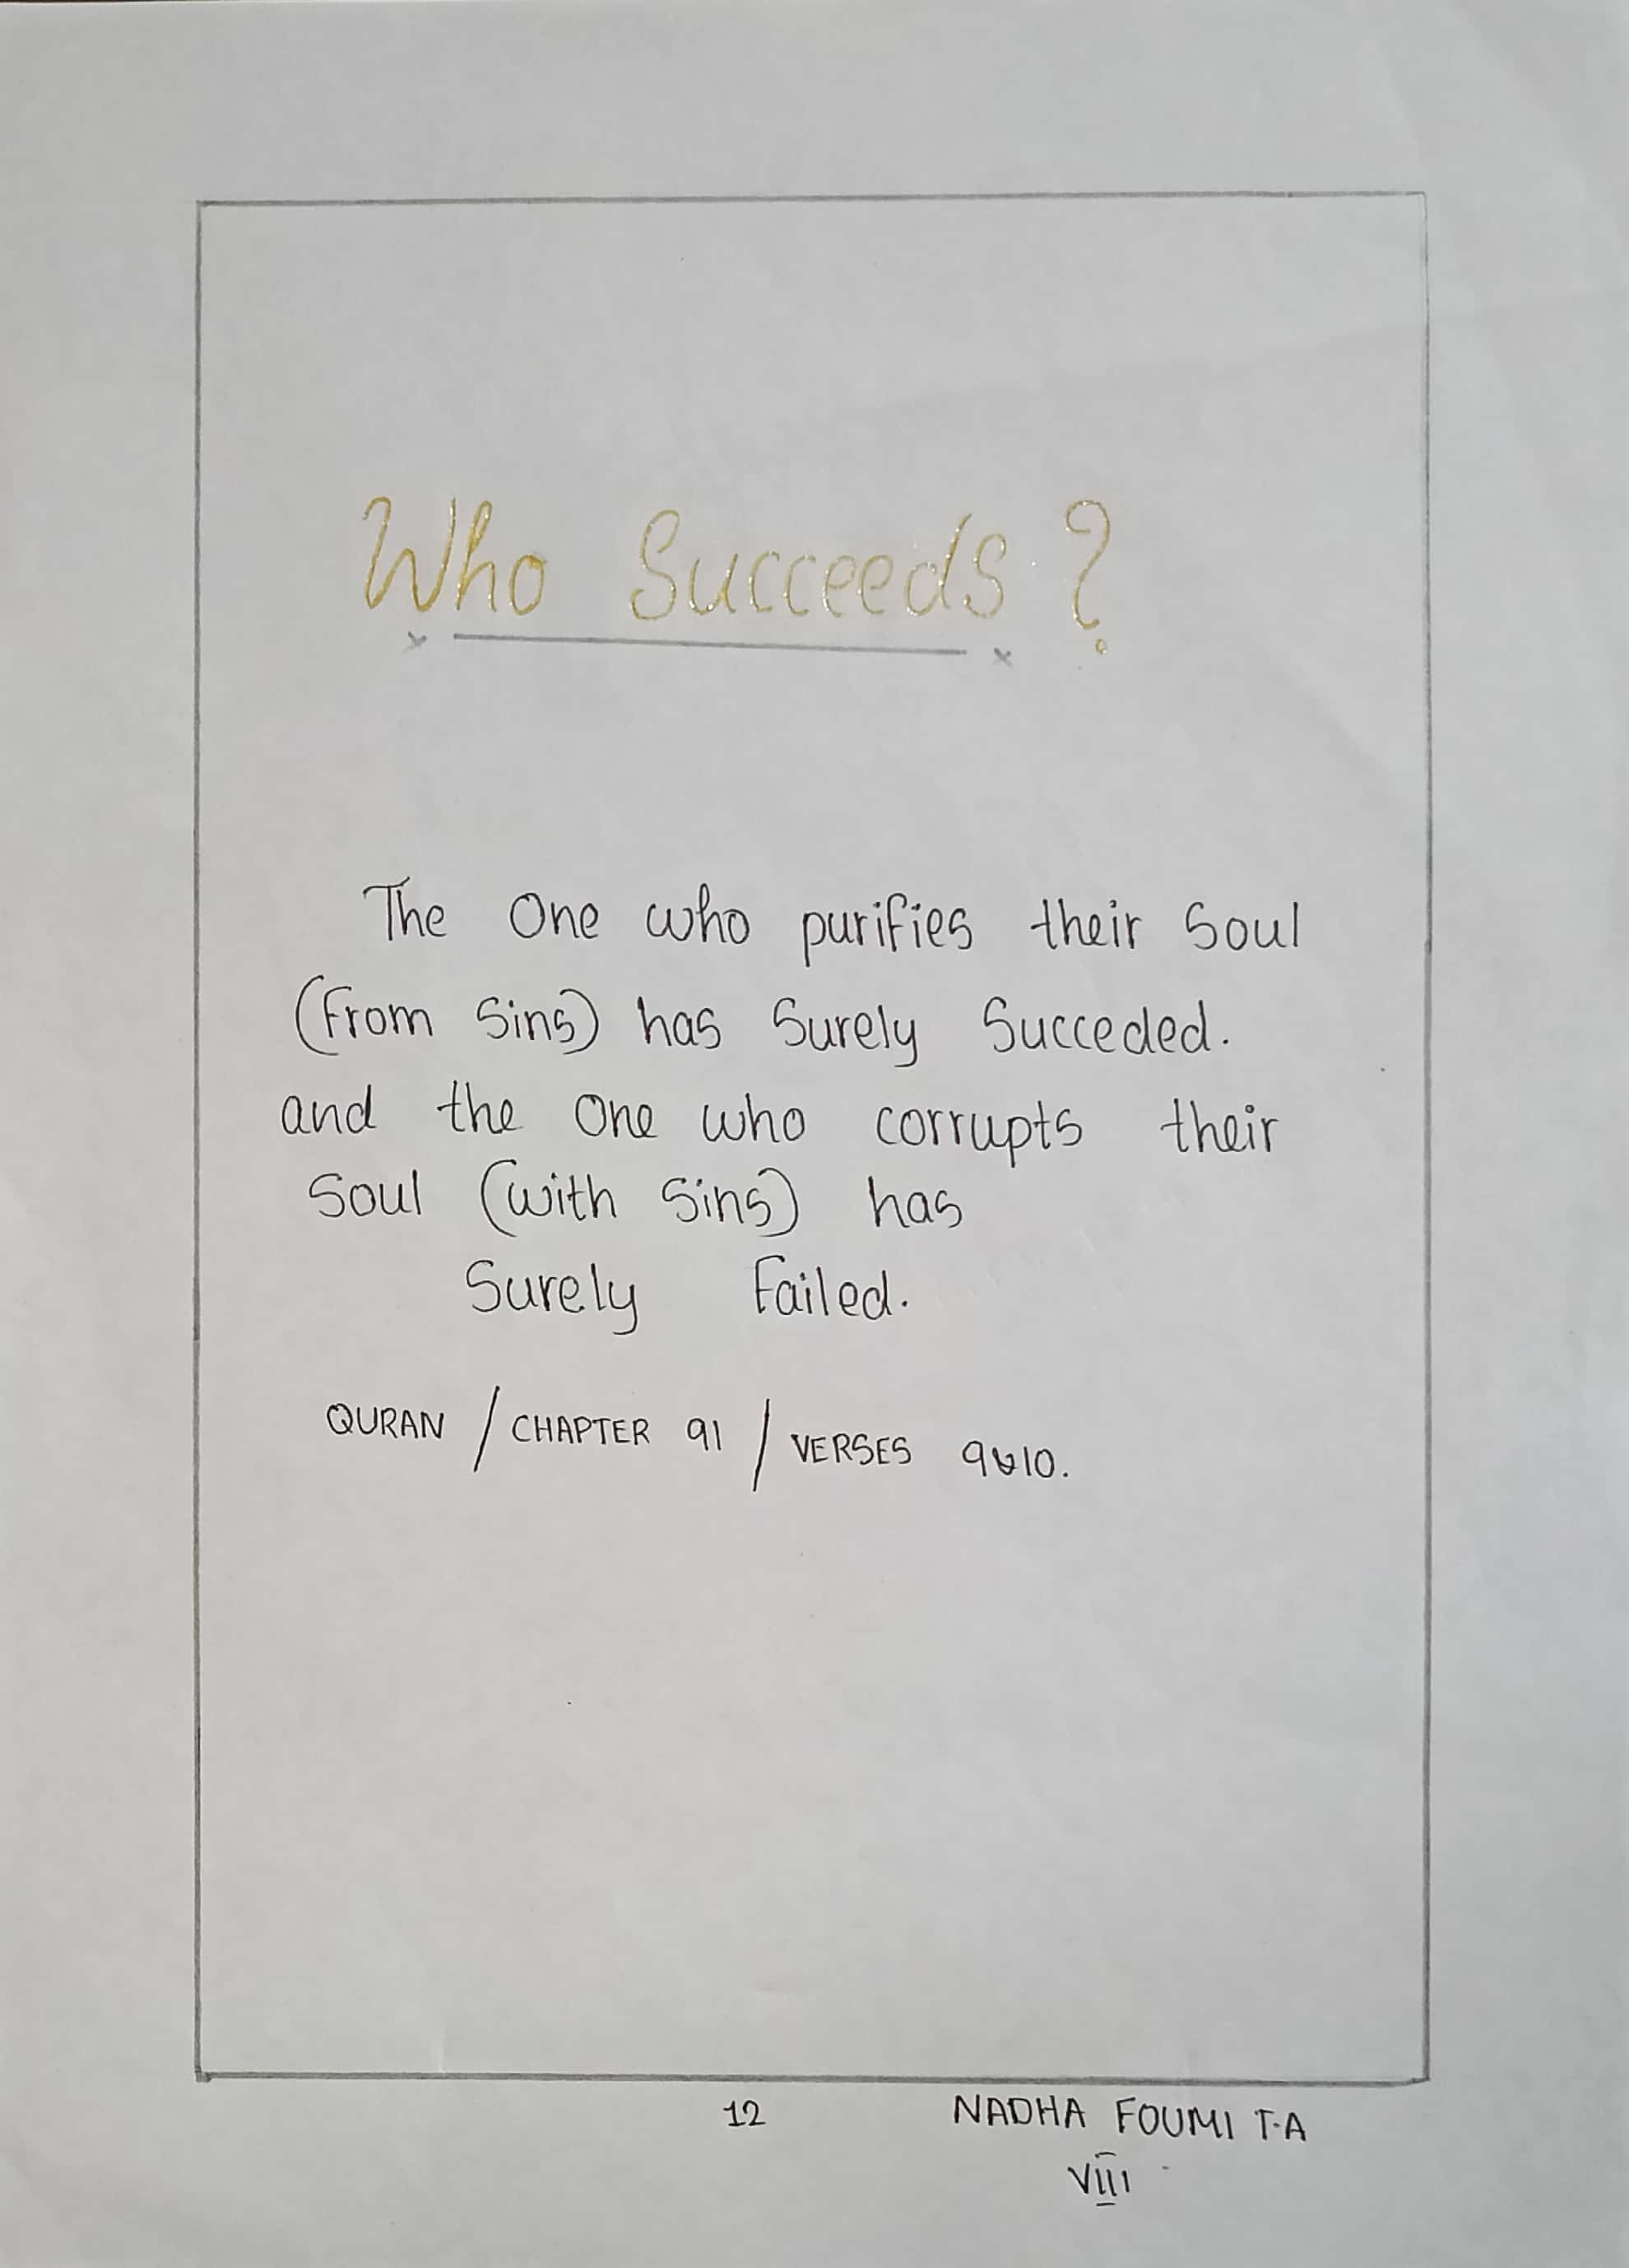 Who Succeeds ?
The One who purifies their Soul
(From Sins) has Surely Succeded.
and the One who corrupts their
Soul (with Sins) has
Surely Failed.
QURAN / CHAPTER 91 / VERSES 9&10.
12 NADHA FOUMI T.A
VIII